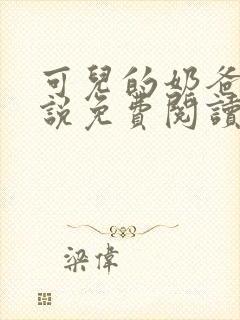 可兒的奶爸
說免費閱讀
梁偉